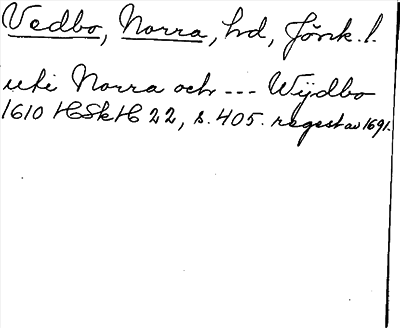 Vedbo, Norra, hd, Jönk. l.
uti Norra och --- Wijdbo
1610 HSkH 22, s. 405. regest av 1691.